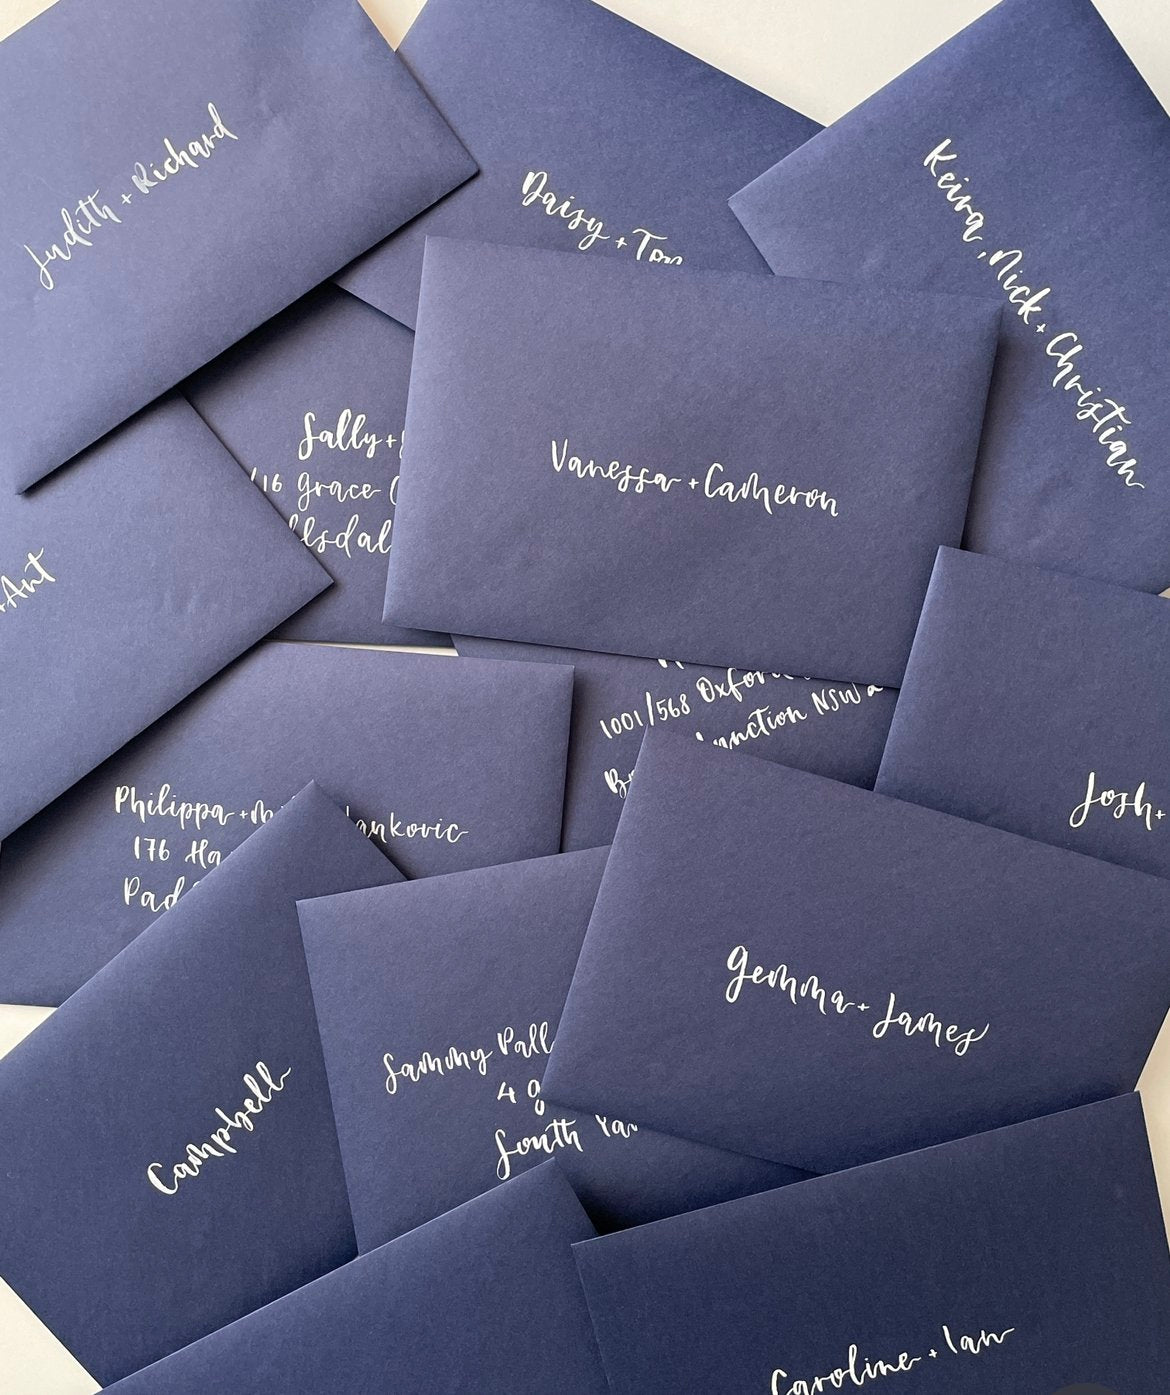 Judith + Richard
Daisy + Tom
Keira, Nick + Christian
Sally +
/16 Grace
Vanessa + Cameron
+Ant
1001/568 Oxford
Junction NSW
Josh +
Philippa + Jankovic
176
Gemma + James
Sammy
4
South
Campbell
Caroline + Ian